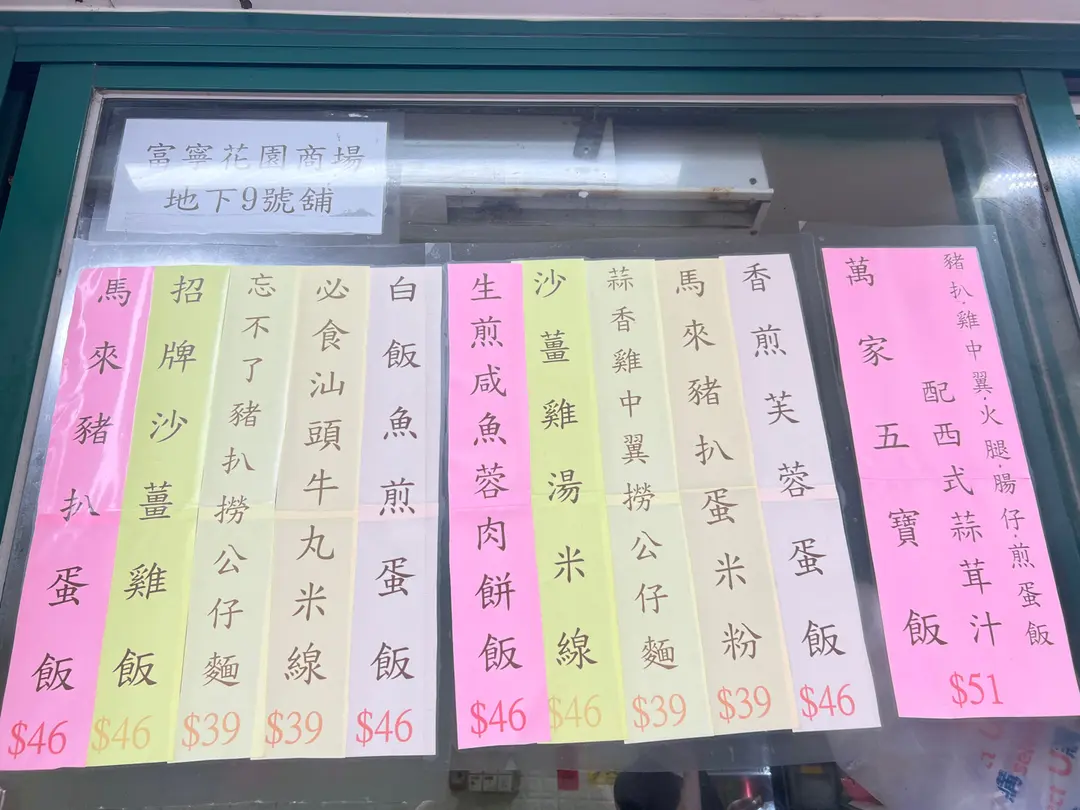 富寧花園商場
地下9號舖
馬來豬扒蛋飯
$46
招牌沙薑雞飯
$46
忘不了豬扒撈公仔麵
$39
必食汕頭牛丸米線
$39
白飯魚煎蛋飯
$46
生煎咸魚蓉肉餅飯
$46
沙薑雞湯米線
$46
蒜香雞中翼撈公仔麵
$39
馬來豬扒蛋米粉
$39
香煎芙蓉蛋飯
$46
萬家五寶飯
配西式蒜茸汁
豬扒·雞中翼·火腿·腸仔·煎蛋飯
$51